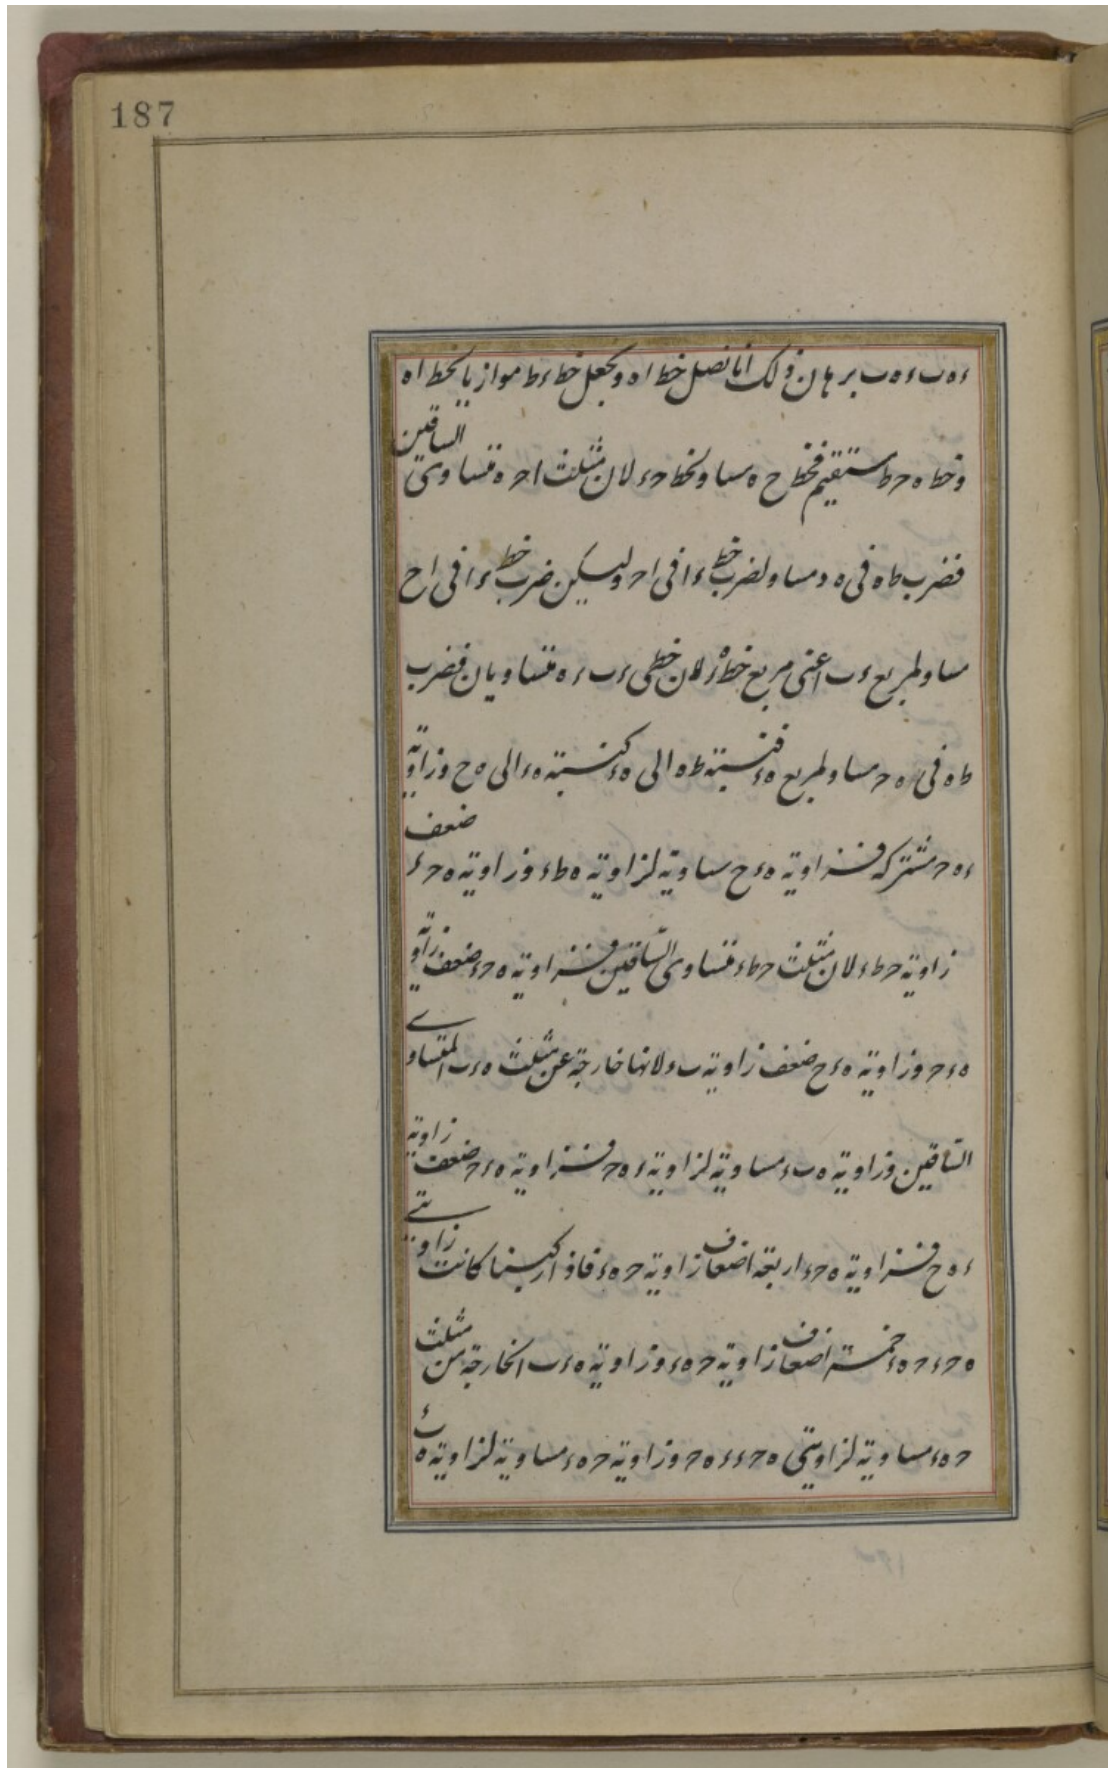 187
ءه ب ءه ب برهان ذلك انا نصل خط اه ونجعل خط ءط موازيا لخط اه
وخط ه ح ط مستقيم فخط ح ه مساو لخط ح ء لان مثلث ا ح ه متساوى الساقين
فضرب ط ه فى ه ح مساو لضرب خط ء ا فى ا ح وليكن ضرب خط ء ا فى ا ح
مساو لمربع ء ب اعنى مربع خط لان خطى ء ب ء ه متساويان فضرب
ط ه فى ه ح مساو لمربع ه ء فنسبة ط ه الى ه ء كنسبة ه ء الى ه ح وزاوية
ء ه ح مشتركة فزاوية ه ء ح مساوية لزاوية ه ط ء وزاوية ه ح ء ضعف
زاوية ح ط ء لان مثلث ح ط ء متساوى الساقين فزاوية ه ح ء ضعف زاوية
ه ء ح وزاوية ه ء ح ضعف زاوية ب ء لانها خارجة عن مثلث ه ء ب المتساوى
الساقين وزاوية ه ب ء مساوية لزاوية ء ه ح فزاوية ه ء ح ضعف زاوية
ء ه ح فزاوية ه ح ء اربعة اضعاف زاوية ح ه ء فاذا ركبنا كانت زاويتى
ه ح ء ح ه ء خمسة اضعاف زاوية ح ه ء وزاوية ه ء ب الخارجة من مثلث
ح ه ء مساوية لزاويتى ه ح ء ء ه ح وزاوية ح ه ء مساوية لزاوية ه ب ء